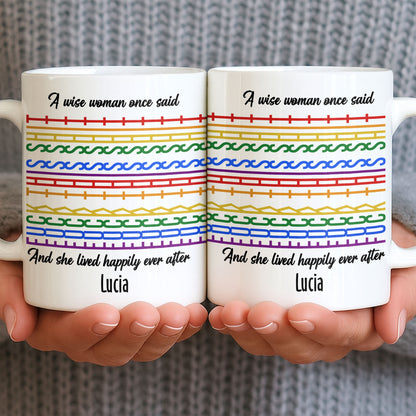 A wise woman once said
And she lived happily ever after
Lucia
A wise woman once said
And she lived happily ever after
Lucia